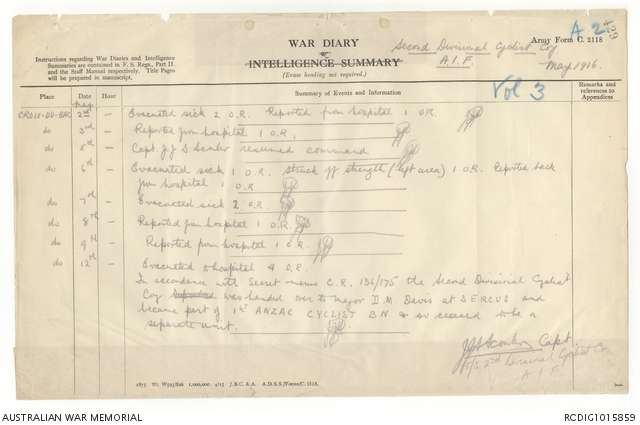 A 2
429
WAR DIARY
or
INTELLIGENCE SUMMARY
(Erase heading not required.)
Second Divisional Cyclist Coy
A.I.F.
Army Form C. 2118
May 1916.
Vol 3
Instructions regarding War Diaries and Intelligence
Summaries are contained in F. S. Regs., Part II
and the Staff Manual respectively. Title Pages
will be prepared in manuscript.
Place Date Hour Summary of Events and Information Remarks and references to Appendices
May
CROIX-DU-BAC 2nd — Evacuated sick 2 O.R. Reported from hospital 1 O.R.
do 3rd — Reported from hospital 1 O.R.
do — Capt. J.J.S. Scanlor resumed command
do 6th — Evacuated sick 1 O.R. Struck off strength (left area) 1 O.R. Reported back
from hospital 1 O.R
do 7th — Evacuated sick 2 O.R.
do 8th — Reported from hospital 1 O.R.
do 9th — Reported from hospital 1 O.R.
do 12th — Evacuated to hospital 4 O.R.
In accordance with Secret memo C.R. 136/175 the Second Divisional Cyclist
Coy was handed over to Major D.M. Davis at SERCUS and
became part of 1st ANZAC CYCLIST BN. & so ceased to be a
separate unit.
Capt.
2nd Divisional Cyclist Coy
A.I.F.
1875 Wt. W593/826 1,000,000 4/15 J.B.C. & A. A.D.S.S./Forms/C. 2118.
AUSTRALIAN WAR MEMORIAL
RCDIG1015859